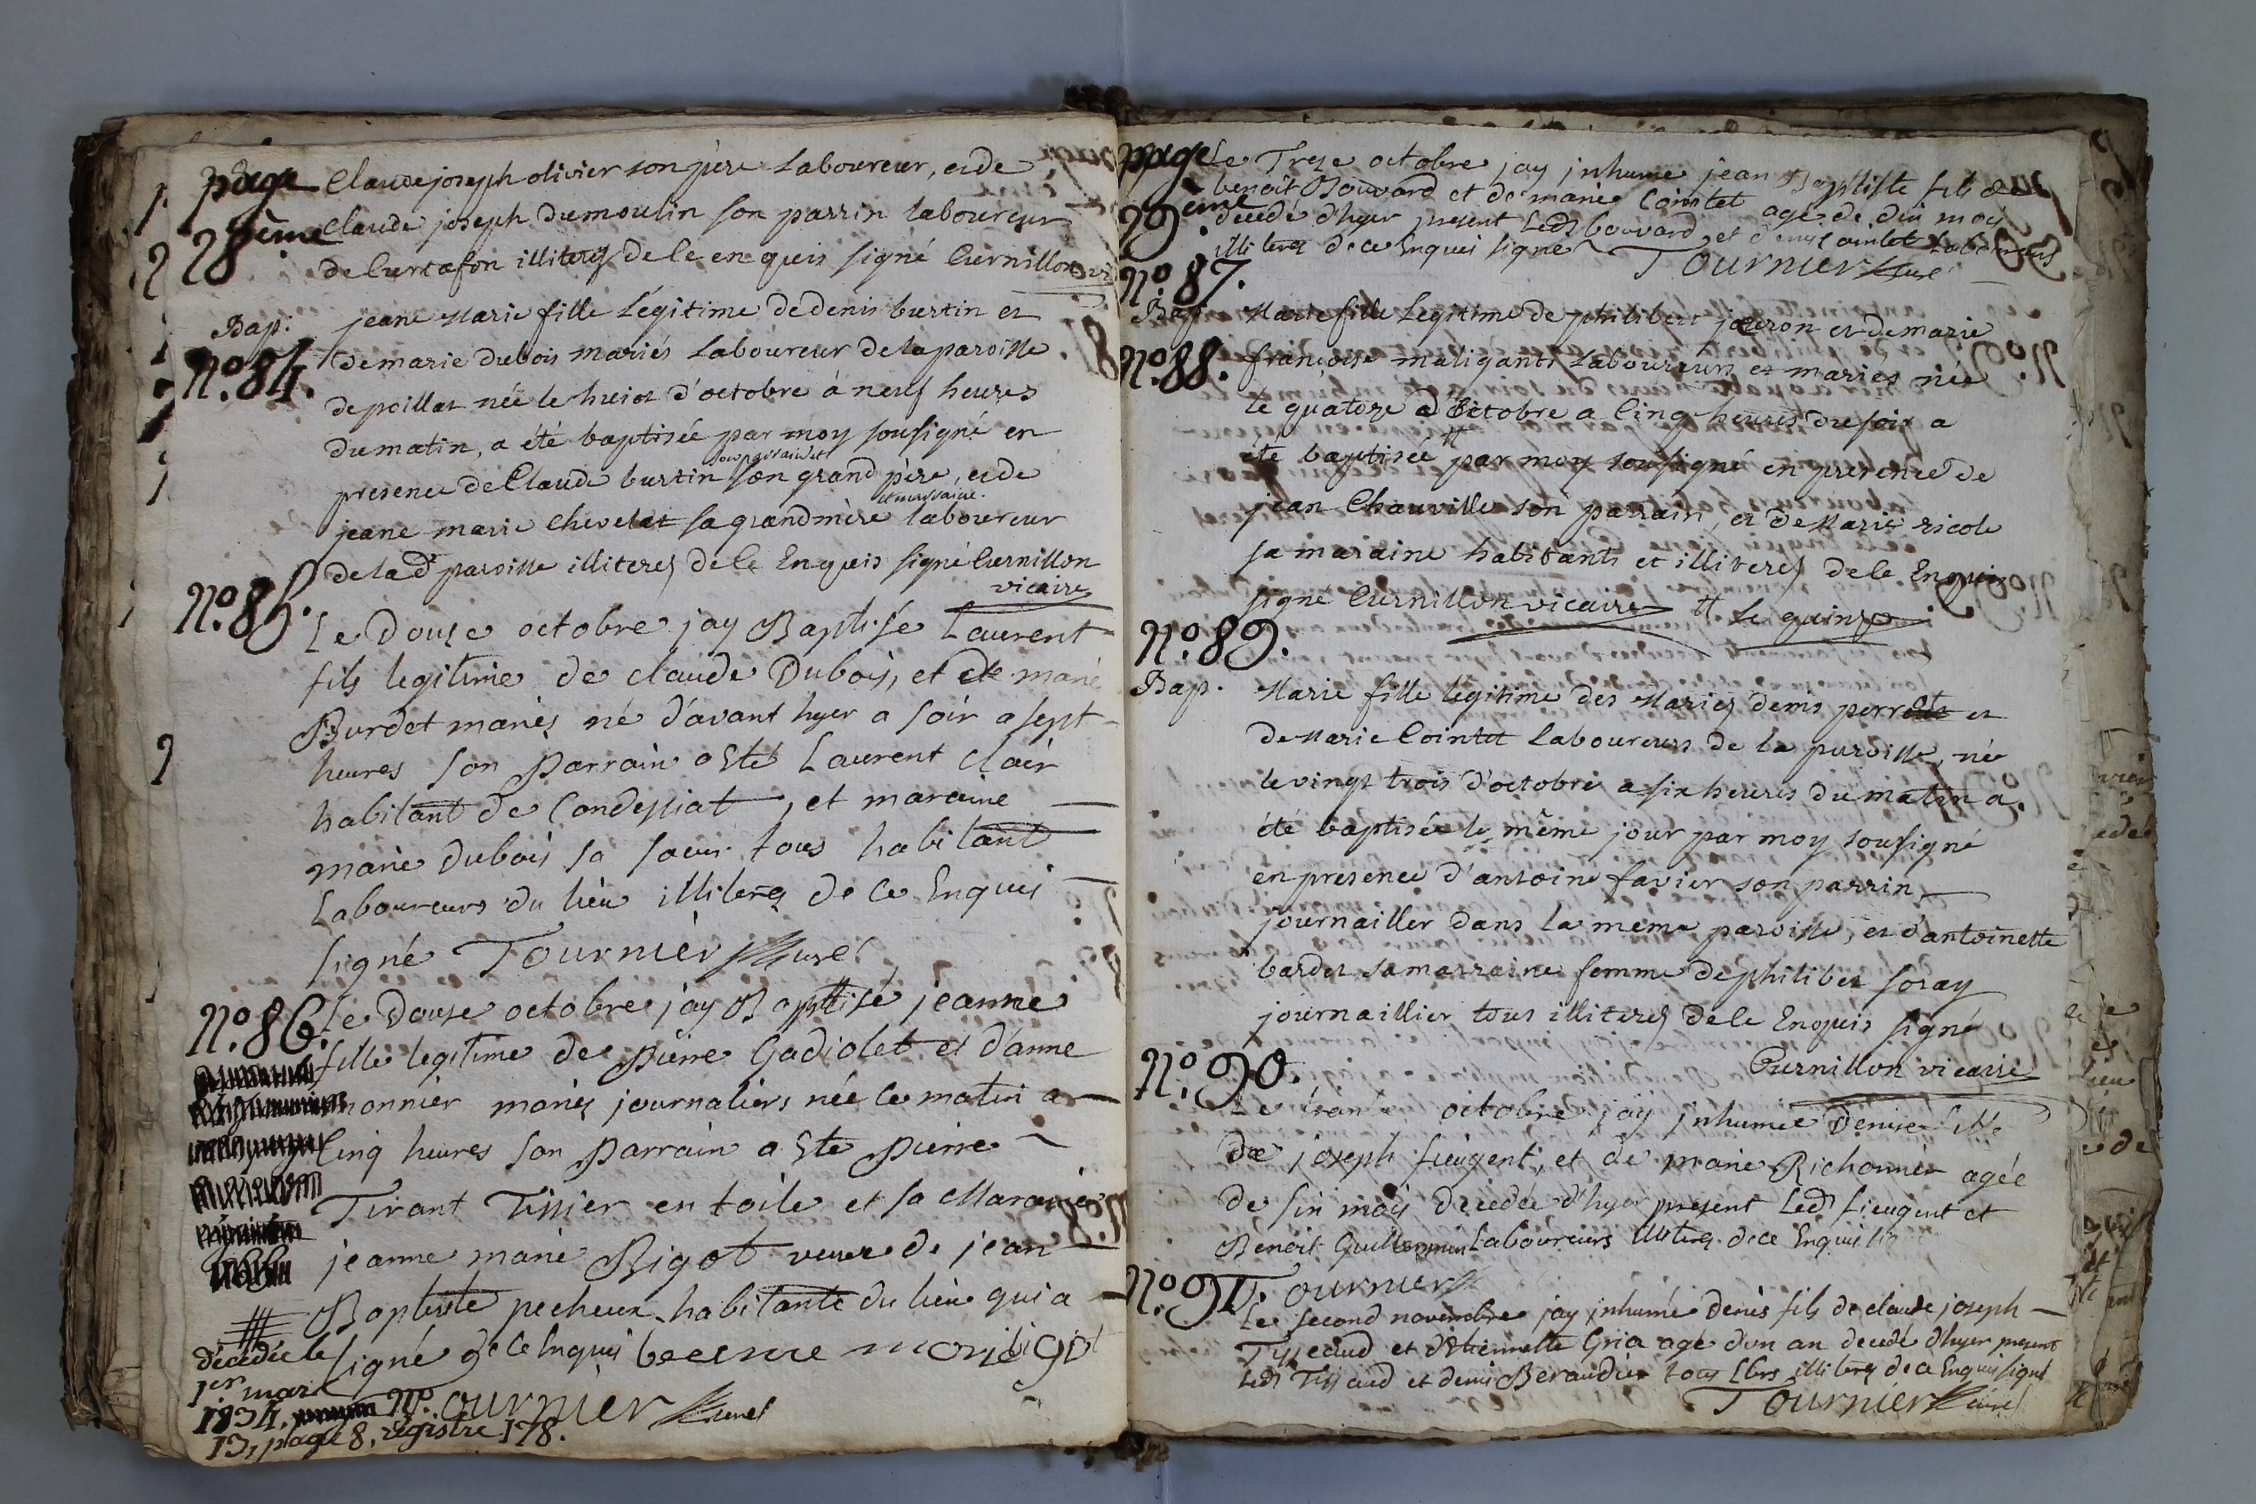 page
28ème
Claude joseph olivier son père Laboureur, et de
Claude joseph Dumoulin son parrin laboureur
de Curtafon illiterés de ce enquis signé Curnillon vi
Bap:
No. 84.
jeane Marie fille Légitime de denis burtin et
de marie dubois mariés Laboureur de la paroisse
de poillat née le huiot d'octobre à neuf heures
du matin, a été baptisée par moy sousigné en
son parrain et
presence de Claude burtin son grand père, et de
et marraine.
jeane marie chevelat sa grand mère laboureur
de la d paroisse illiterés de ce Enquis signé Curnillon
vicaire
No. 85.
Le Douze octobre jay Baptisé Laurent
fils legitime de claude Dubois, et de marie
Burdet mariés né d'avant hyer a soir a sept
heures son Parrain a Esté Laurent Clair
habitant de Condessiat, et maraine
marie dubois sa soeur tous habitant
Laboureurs du lieu illiterés de ce Enquis
signé Tournier Curé
No. 86.
Le Douse octobre jay Baptisé jeanne
fille legitime de pierre Gadiolet et d'anne
monnier mariés journaliers née ce matin a
Cinq heures son Parrain a Esté pierre
Tirant Tissier en toile et sa Maraine
jeanne marie Bigot veuve de jean
Baptiste pecheux habitante du lieu qui a
signé de ce Enquis
Tournier Curé
décédée le
1er mars
1834. No.
13, page 8, régistre 178.
page
29ème
No. 87.
Le Treze octobre jay inhumé jean Baptiste fils de
benoît Bouvard et de marie Cointet agé de dix mois
decedé d'hyer present Led bouvard, et denis cointet Laboureurs
illiterés de ce Enquis signé Tournier Curé
Bap.
No. 88.
Marie fille Légitime de philibert josseron et de marie
françoise maligant Laboureurs et mariés née
le quatoze d'octobre a Cinq heures du soir a
été baptisée par moy sousigné en presence de
jean Chauville son parrain, et de Marie nicole
sa maraine habitants et illiterés de ce Enquis
signé Curnillon vicaire # Le quinze
No. 89.
Bap.
Marie fille légitime des Mariés denis perret et
de Marie Cointet Laboureurs de la paroisse, née
le vingt trois d'octobre a six heures du matin a.
été baptisée le même jour par moy sousigné
en presence d'antoine favier son parrin
journailler dans la meme paroisse, et d'antoinette
bardet sa marraine femme de philibet foray
journaillier tous illiterés de ce Enquis signé
Curnillon vicaire
No. 90.
Le trante octobre jay inhumée Denise fille
de joseph fieugent, et de marie Richonnier agée
de six mois decedée d'hyer present Led fieugent et
Benoit Guillermin Laboureurs illiterés de ce Enquis
Tournier
No. 91.
Le second novembre jay inhumé denis fils de claude joseph
Tissaud et d'Etiennette Gria agé d'un an decedé d'hyer present
Led Tissaud et denis Beraudier tous Lbrs illiterés de ce Enquis signé
Tournier Curé